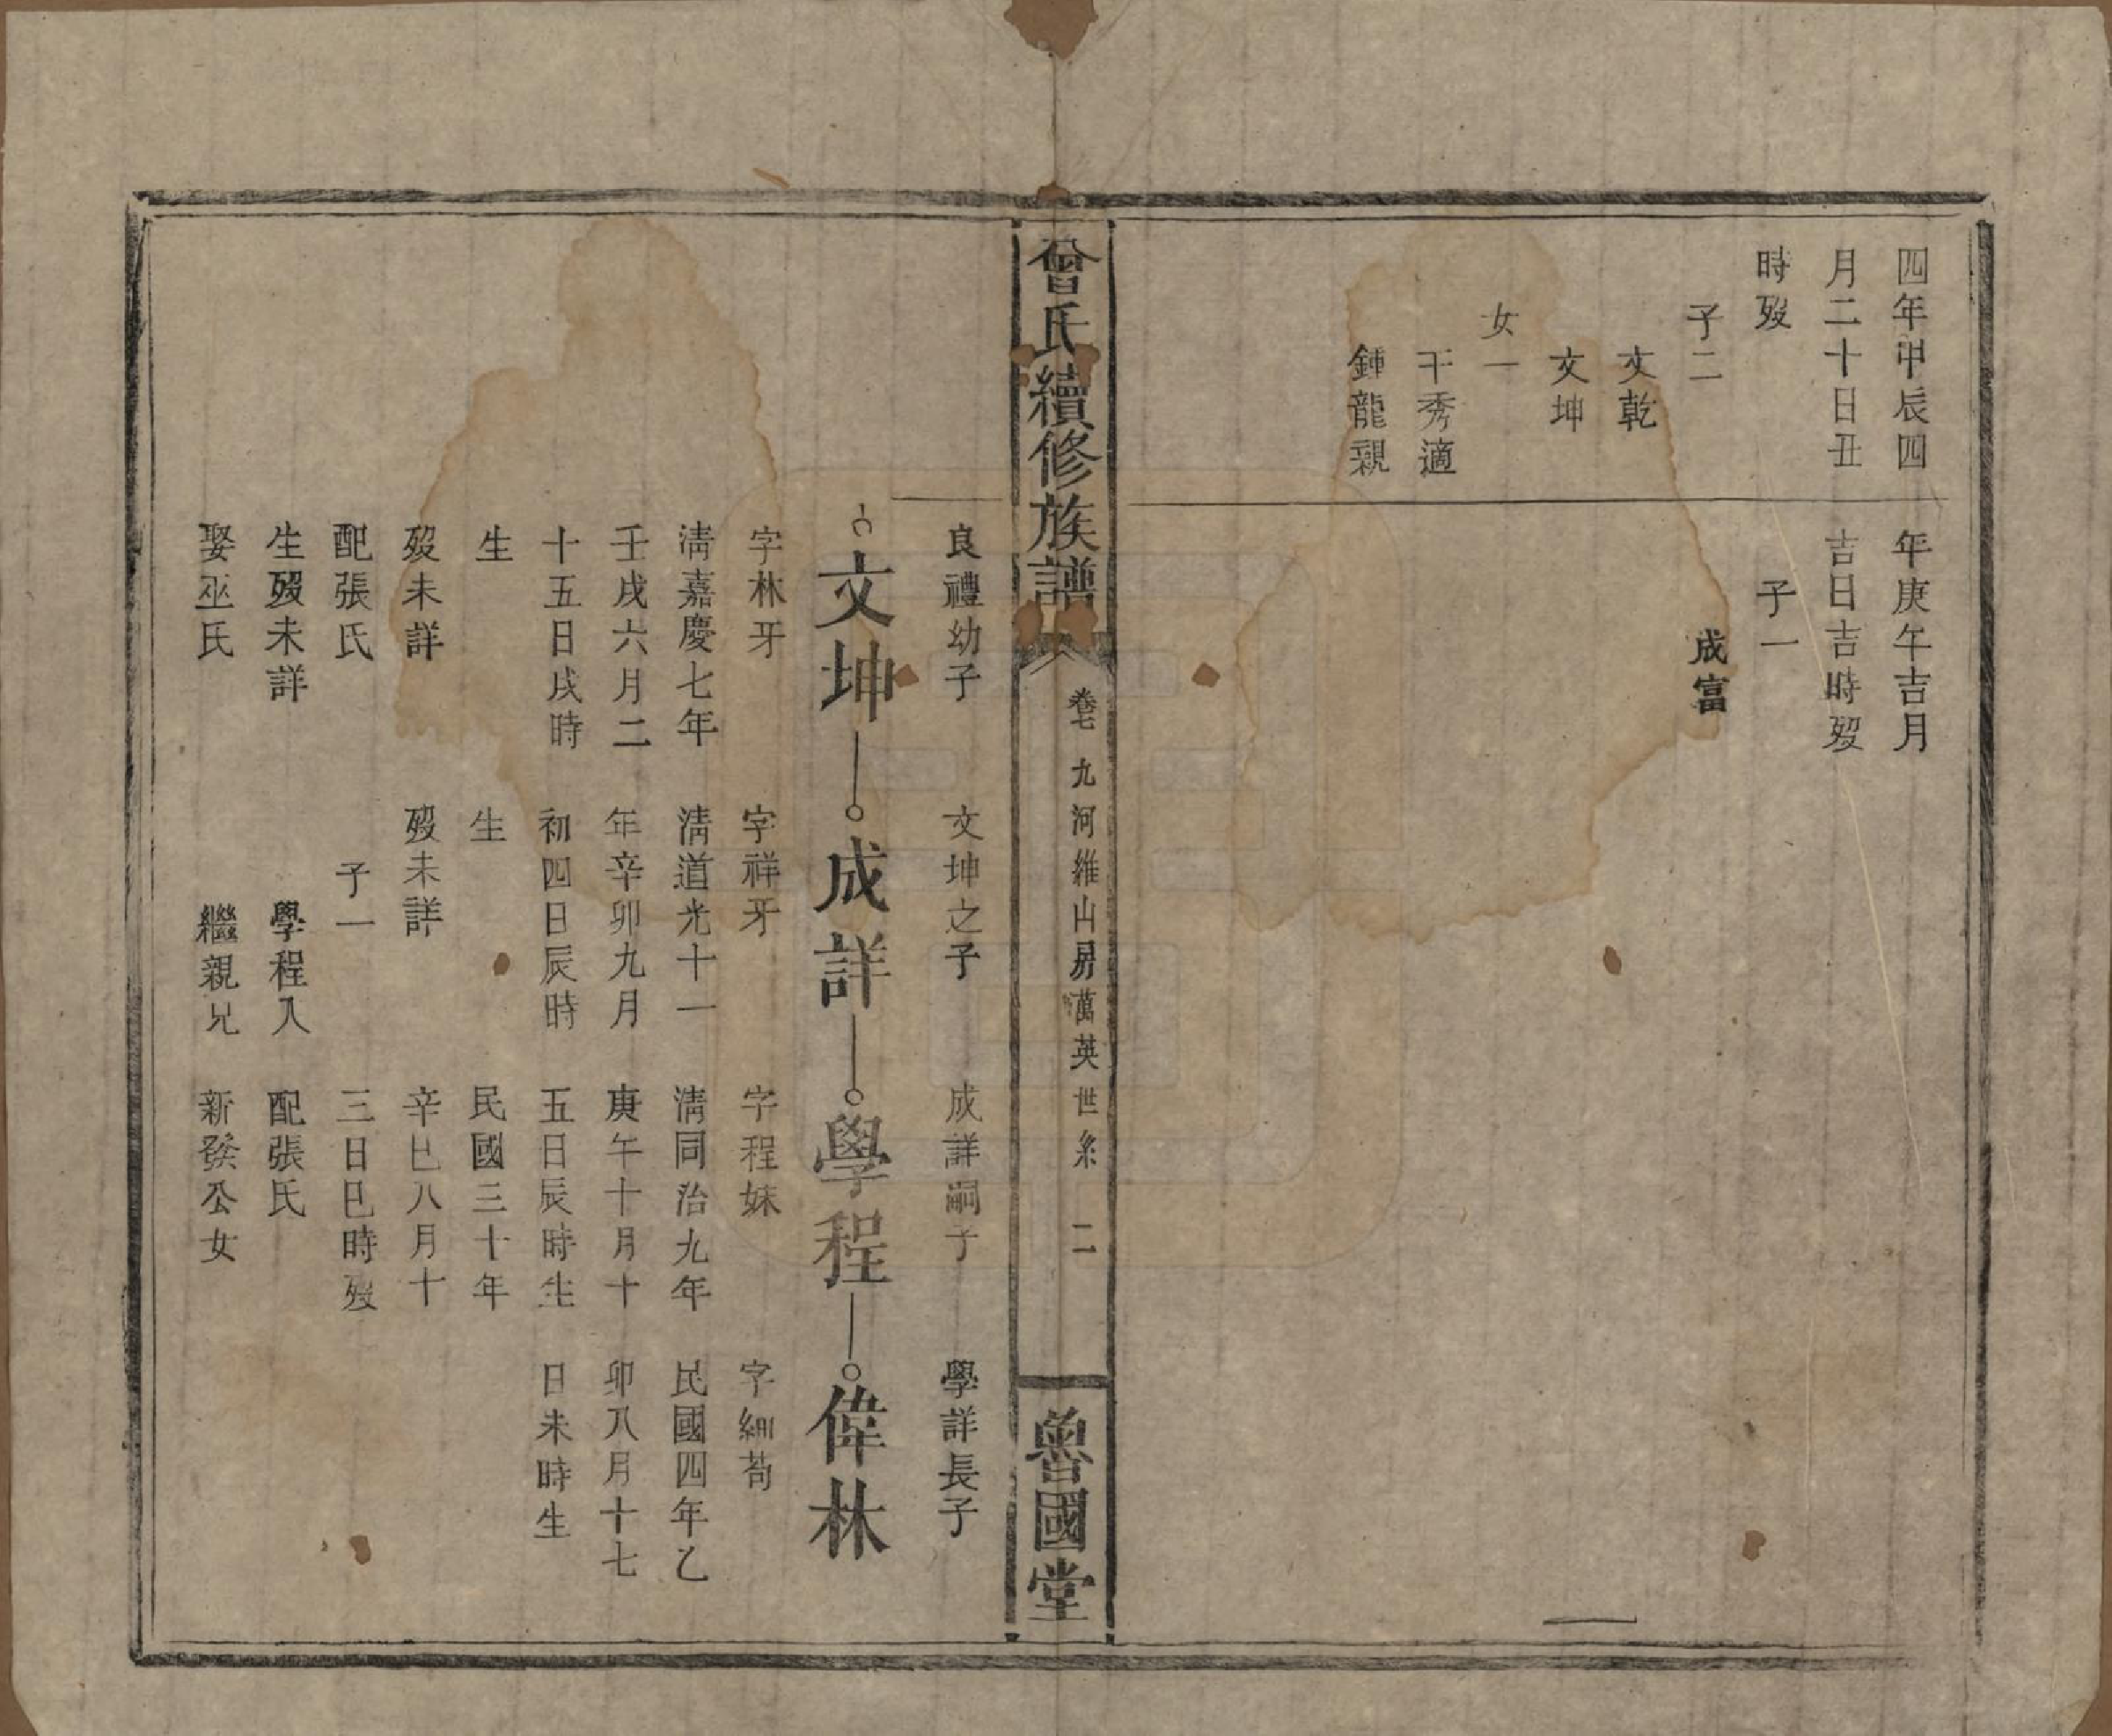 四年甲辰四
月二十日丑
時歿
子二
文乾
文坤
女一
干秀適
鍾龍親
年庚午吉月
吉日吉時歿
子一
成富
曾氏續修族譜
卷七 九河維山房萬英世系 二
魯國堂
良禮幼子
文坤
字林牙
清嘉慶七年
壬戌六月二
十五日戌時
生
歿未詳
配張氏
生歿未詳
娶巫氏
文坤之子
成詳
字祥牙
清道光十一
年辛卯九月
初四日辰時
生
歿未詳
子一
學程入
繼親兄
成詳嗣子
學程
字程妹
清同治九年
庚午十月十
五日辰時生
民國三十年
辛巳八月十
三日巳時歿
配張氏
新發公女
學詳長子
偉林
字細苟
民國四年乙
卯八月十七
日未時生